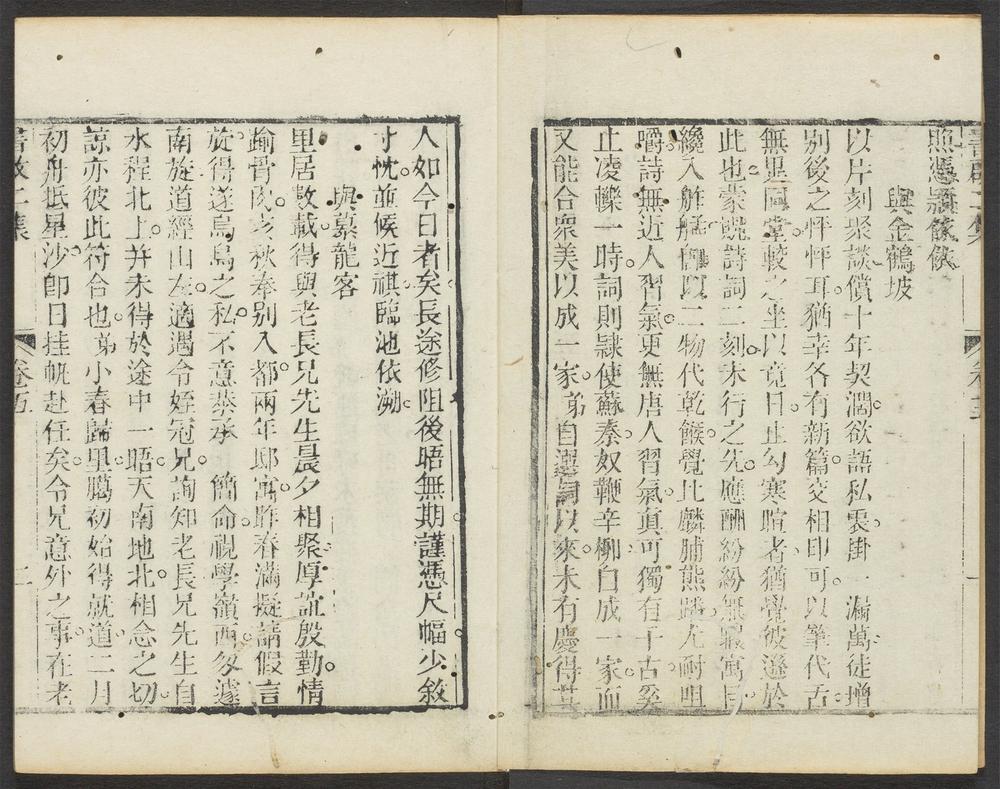 照憑潁依依
與金鶴坡
以片刻聚談償十年契濶欲語私衷掛一漏萬徒增
別後之怦怦耳猶幸各有新篇交相印可以筆代舌
無異同堂較之坐以竟日止勾寒暄者猶覺彼遜於
此也蒙貺詩詞二刻未行之先應酬紛紛無暇寓目
纔入舟以二物代乾餱覺此麟脯熊蹯尤耐咀
嚼詩無近人習氣更無唐人習氣真可獨有千古奚
止凌轢一時詞則隷使蘇秦奴鞭辛柳自成一家而
又能合衆美以成一家弟自選詞以來未有慶得其
人如今日者矣長途修阻後晤無期謹憑尺幅少敘
寸忱並候近祺臨池依溯
與慕龍客
里居數載得與老長兄先生晨夕相聚厚誼殷勤情
踰骨肉亥秋奉别入都兩年邸寓昨春滿擬請假言
旋得遂烏鳥之私不意恭承 簡命視學嶺西匆遽
南旋道經山左適遇令姪冠兄詢知老長兄先生自
水程北上并未得於途中一晤天南地北相念之切
諒亦彼此符合也弟小春歸里臈初始得就道二月
初舟抵星沙卽日挂帆赴任矣令兄意外之事在老
卷五
二